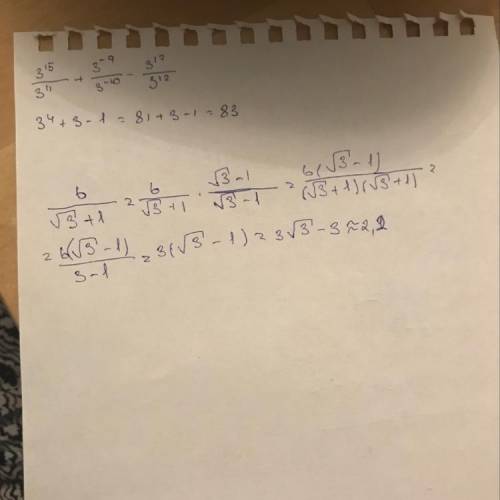 3^15/3^11 + 3^-9/3^-10 - 3^12/3^12
3^4 + 3 - 1 = 81 + 3 - 1 = 83
6/(√3 + 1) = 6/(√3 + 1) · (√3 - 1)/(√3 - 1) = 6(√3 - 1)/((√3 + 1)(√3 + 1)) =
= 6(√3 - 1)/(3 - 1) = 3(√3 - 1) = 3√3 - 3 ≈ 2,2